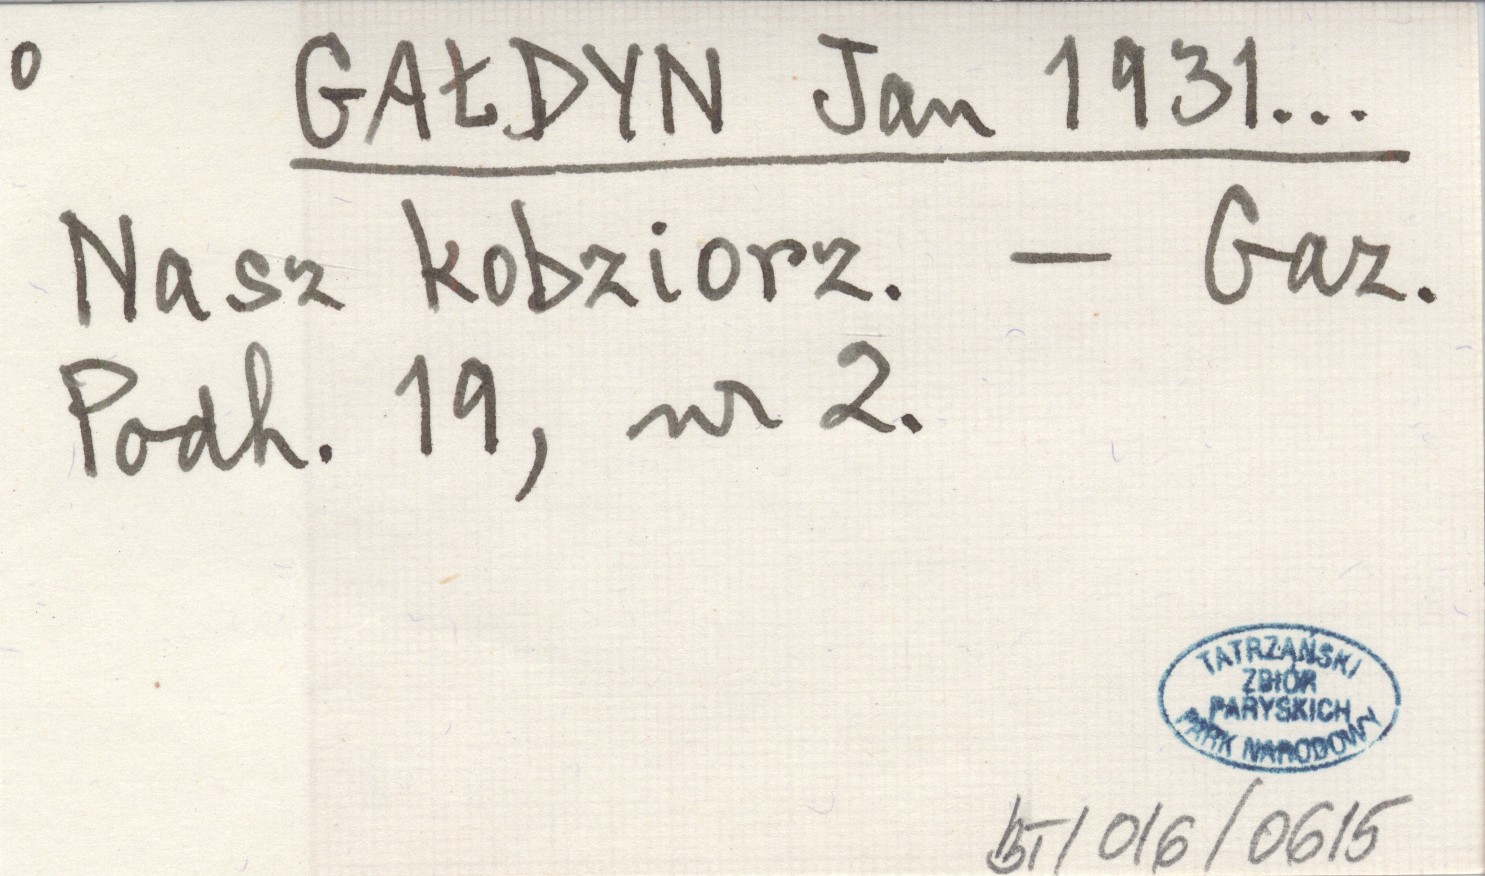 o GAŁDYN Jan 1931...
Nasz kobziorz. — Gaz.
Podh. 19, nr 2.
TATRZAŃSKI
ZBIÓR
PARYSKICH
PARK NARODOWY
BT/016/0615